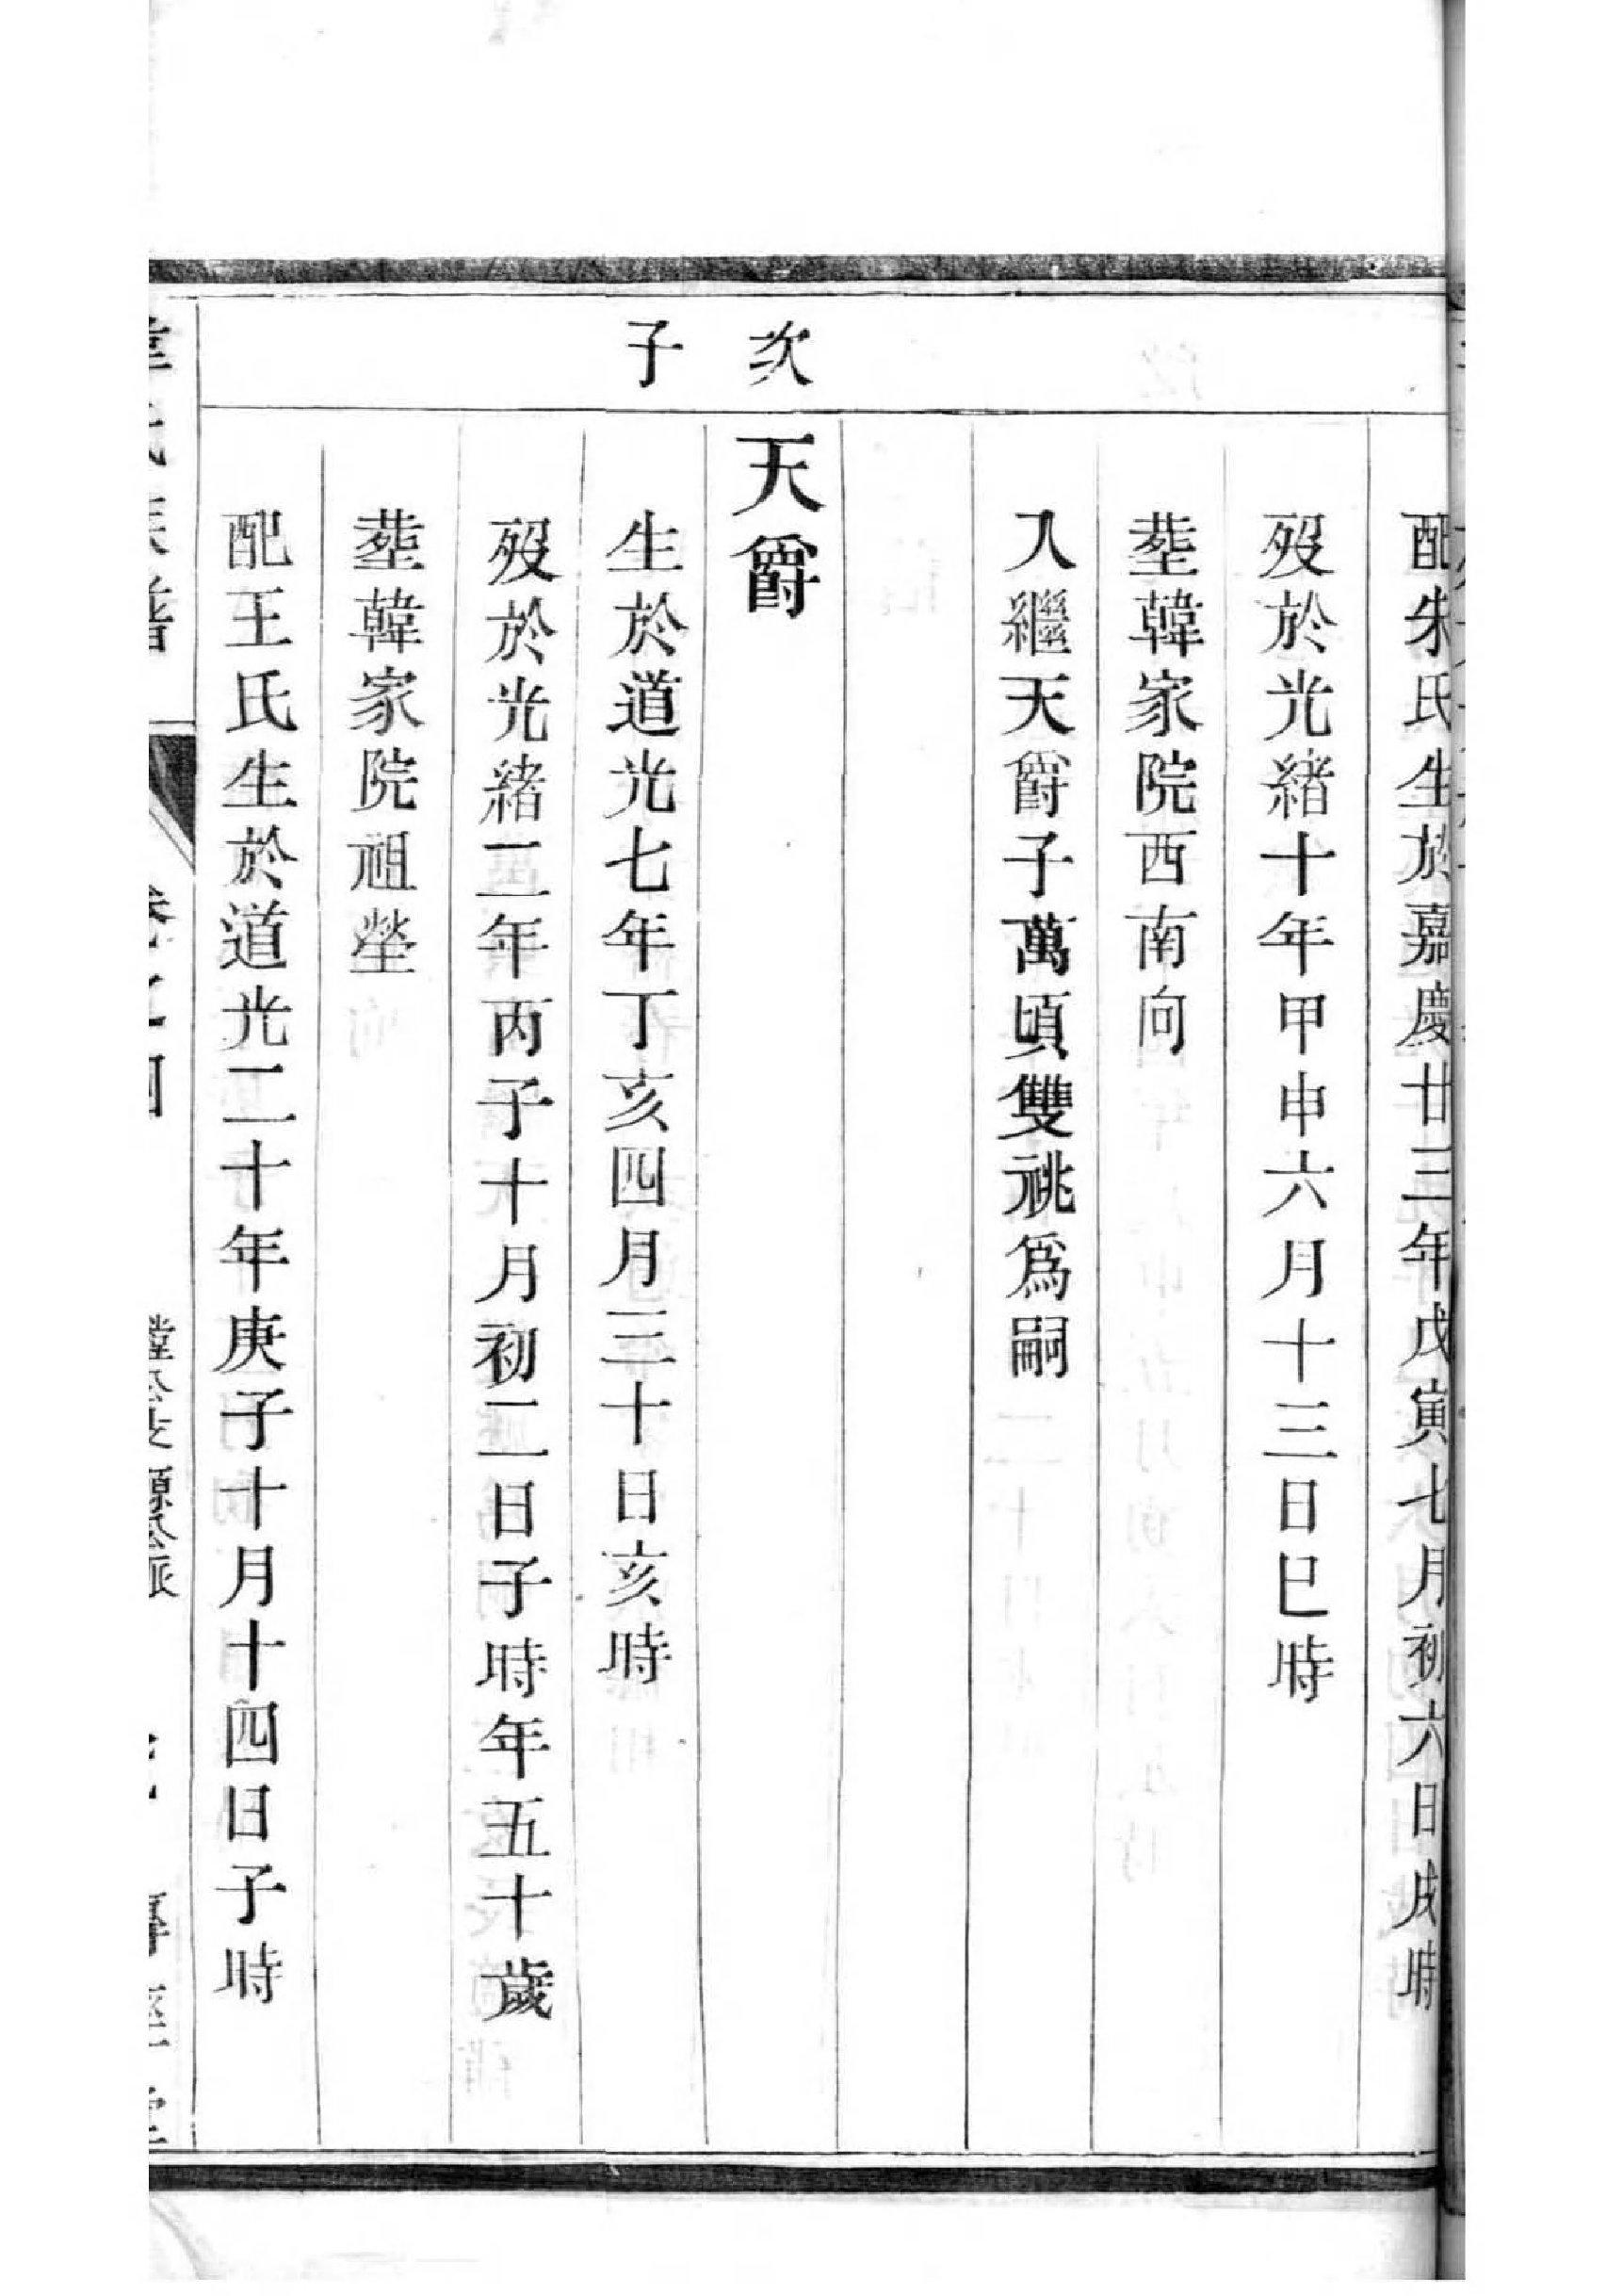 配朱氏生於嘉慶廿三年戊寅七月初六日戌時
歿於光緒十年甲申六月十三日巳時
塟韓家院西南向
入繼天爵子萬頃雙祧爲嗣
次子
天爵
生於道光七年丁亥四月三十日亥時
歿於光緒二年丙子十月初二日子時年五十歲
塟韓家院祖塋
配王氏生於道光二十年庚子十月十四日子時
氏族譜
卷之四